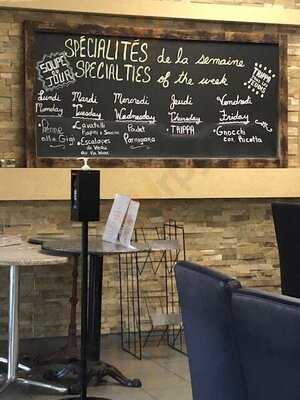 SPÉCIALITÉS de la semaine
SPECIALTIES of the week
SOUPE
DU
JOUR
TRIPPA
TOUS LES
JEUDIS
Lundi
Monday
• Penne
alla Gigi
Mardi
Tuesday
• Cavatelli
Rapini e Saucisse
• Escalopes
de Veau
au vin blanc
Mercredi
Wednesday
Poulet
Parmigiana
Jeudi
Thursday
• TRIPPA
Vendredi
Friday
• Gnocchi
con Ricotta